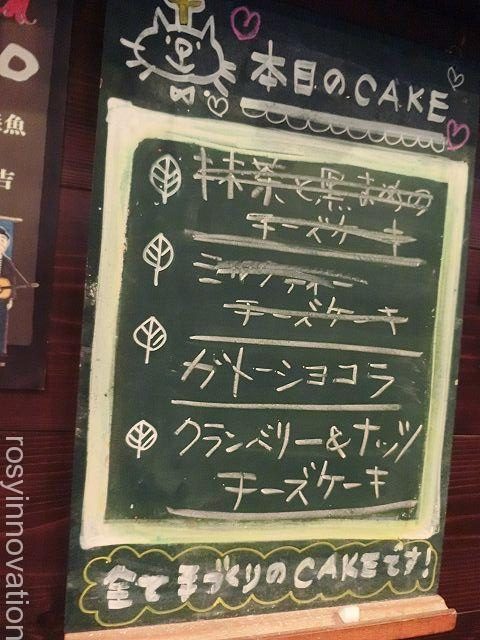 本日のCAKE
抹茶と黒まめの
チーズケーキ
ミルクティー
チーズケーキ
ガトーショコラ
クランベリー&ナッツ
チーズケーキ
全て手づくりのCAKEです!
魚
吉
rosyinnovation